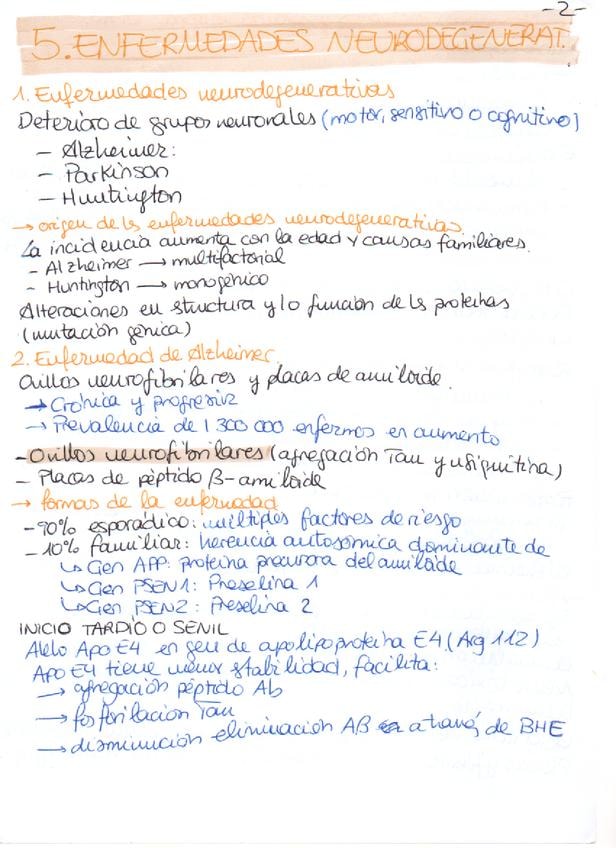 -2-
5. ENFERMEDADES NEURODEGENERAT.
1. Enfermedades neurodegenerativas
Deterioro de grupos neuronales (motor, sensitivo o cognitivo)
- Alzheimer:
- Parkinson
- Huntington
→ origen de ls enfermedades neurodegenerativas.
La incidencia aumenta con la edad y causas familiares.
- Alzheimer → multifactorial
- Huntington → monogénico
Alteraciones en structura y/o función de ls proteinas
(mutación génica)
2. Enfermedad de Alzheimer.
Ovillos neurofibrilares y placas de amiloide.
→ Crónica y progresiva
→ Prevalencia de 1300 000 enfermos en aumento
- Ovillos neurofibrilares (agregación Tau y ubiquitina)
- Placas de péptido β-amiloide
→ formas de la enfermedad
- 90% esporádico: múltiples factores de riesgo
- 10% familiar: herencia autosómica dominante de
↳ Gen APP: proteína precursora del amiloide
↳ Gen PSEN1: Preselina 1
↳ Gen PSEN2: Preselina 2
INICIO TARDÍO O SENIL
Alelo Apo E4 en gen de apolipoproteína E4 (Arg 112)
Apo E4 tiene menor stabilidad, facilita:
→ agregación péptido Ab
→ fosforilación Tau
→ disminución eliminación AB a través de BHE